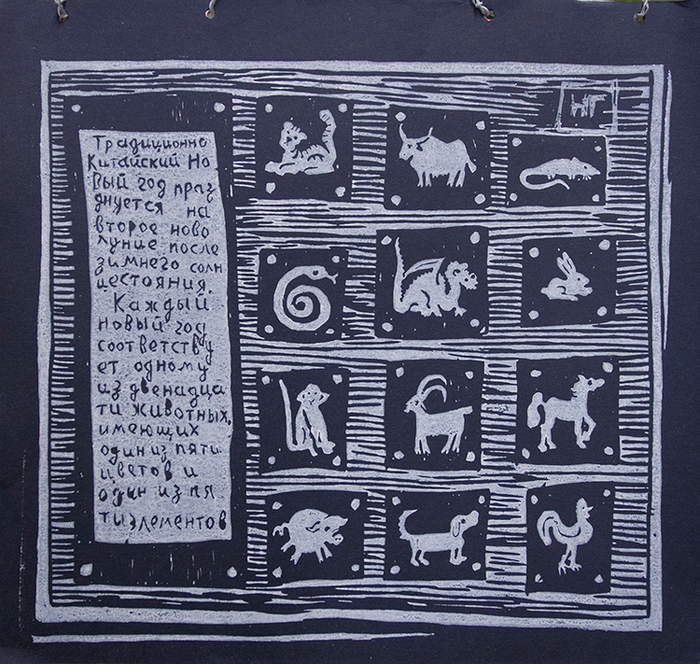 Традиционно
Китайский Но
вый год праз
днуется на
второе ново
луние после
зимнего солн
цестояния.
Каждый
новый год
соответству
ет одному
из двенадца
ти животных,
имеющих
один из пяти
цветов и
один из пя
ти элементов
НГ